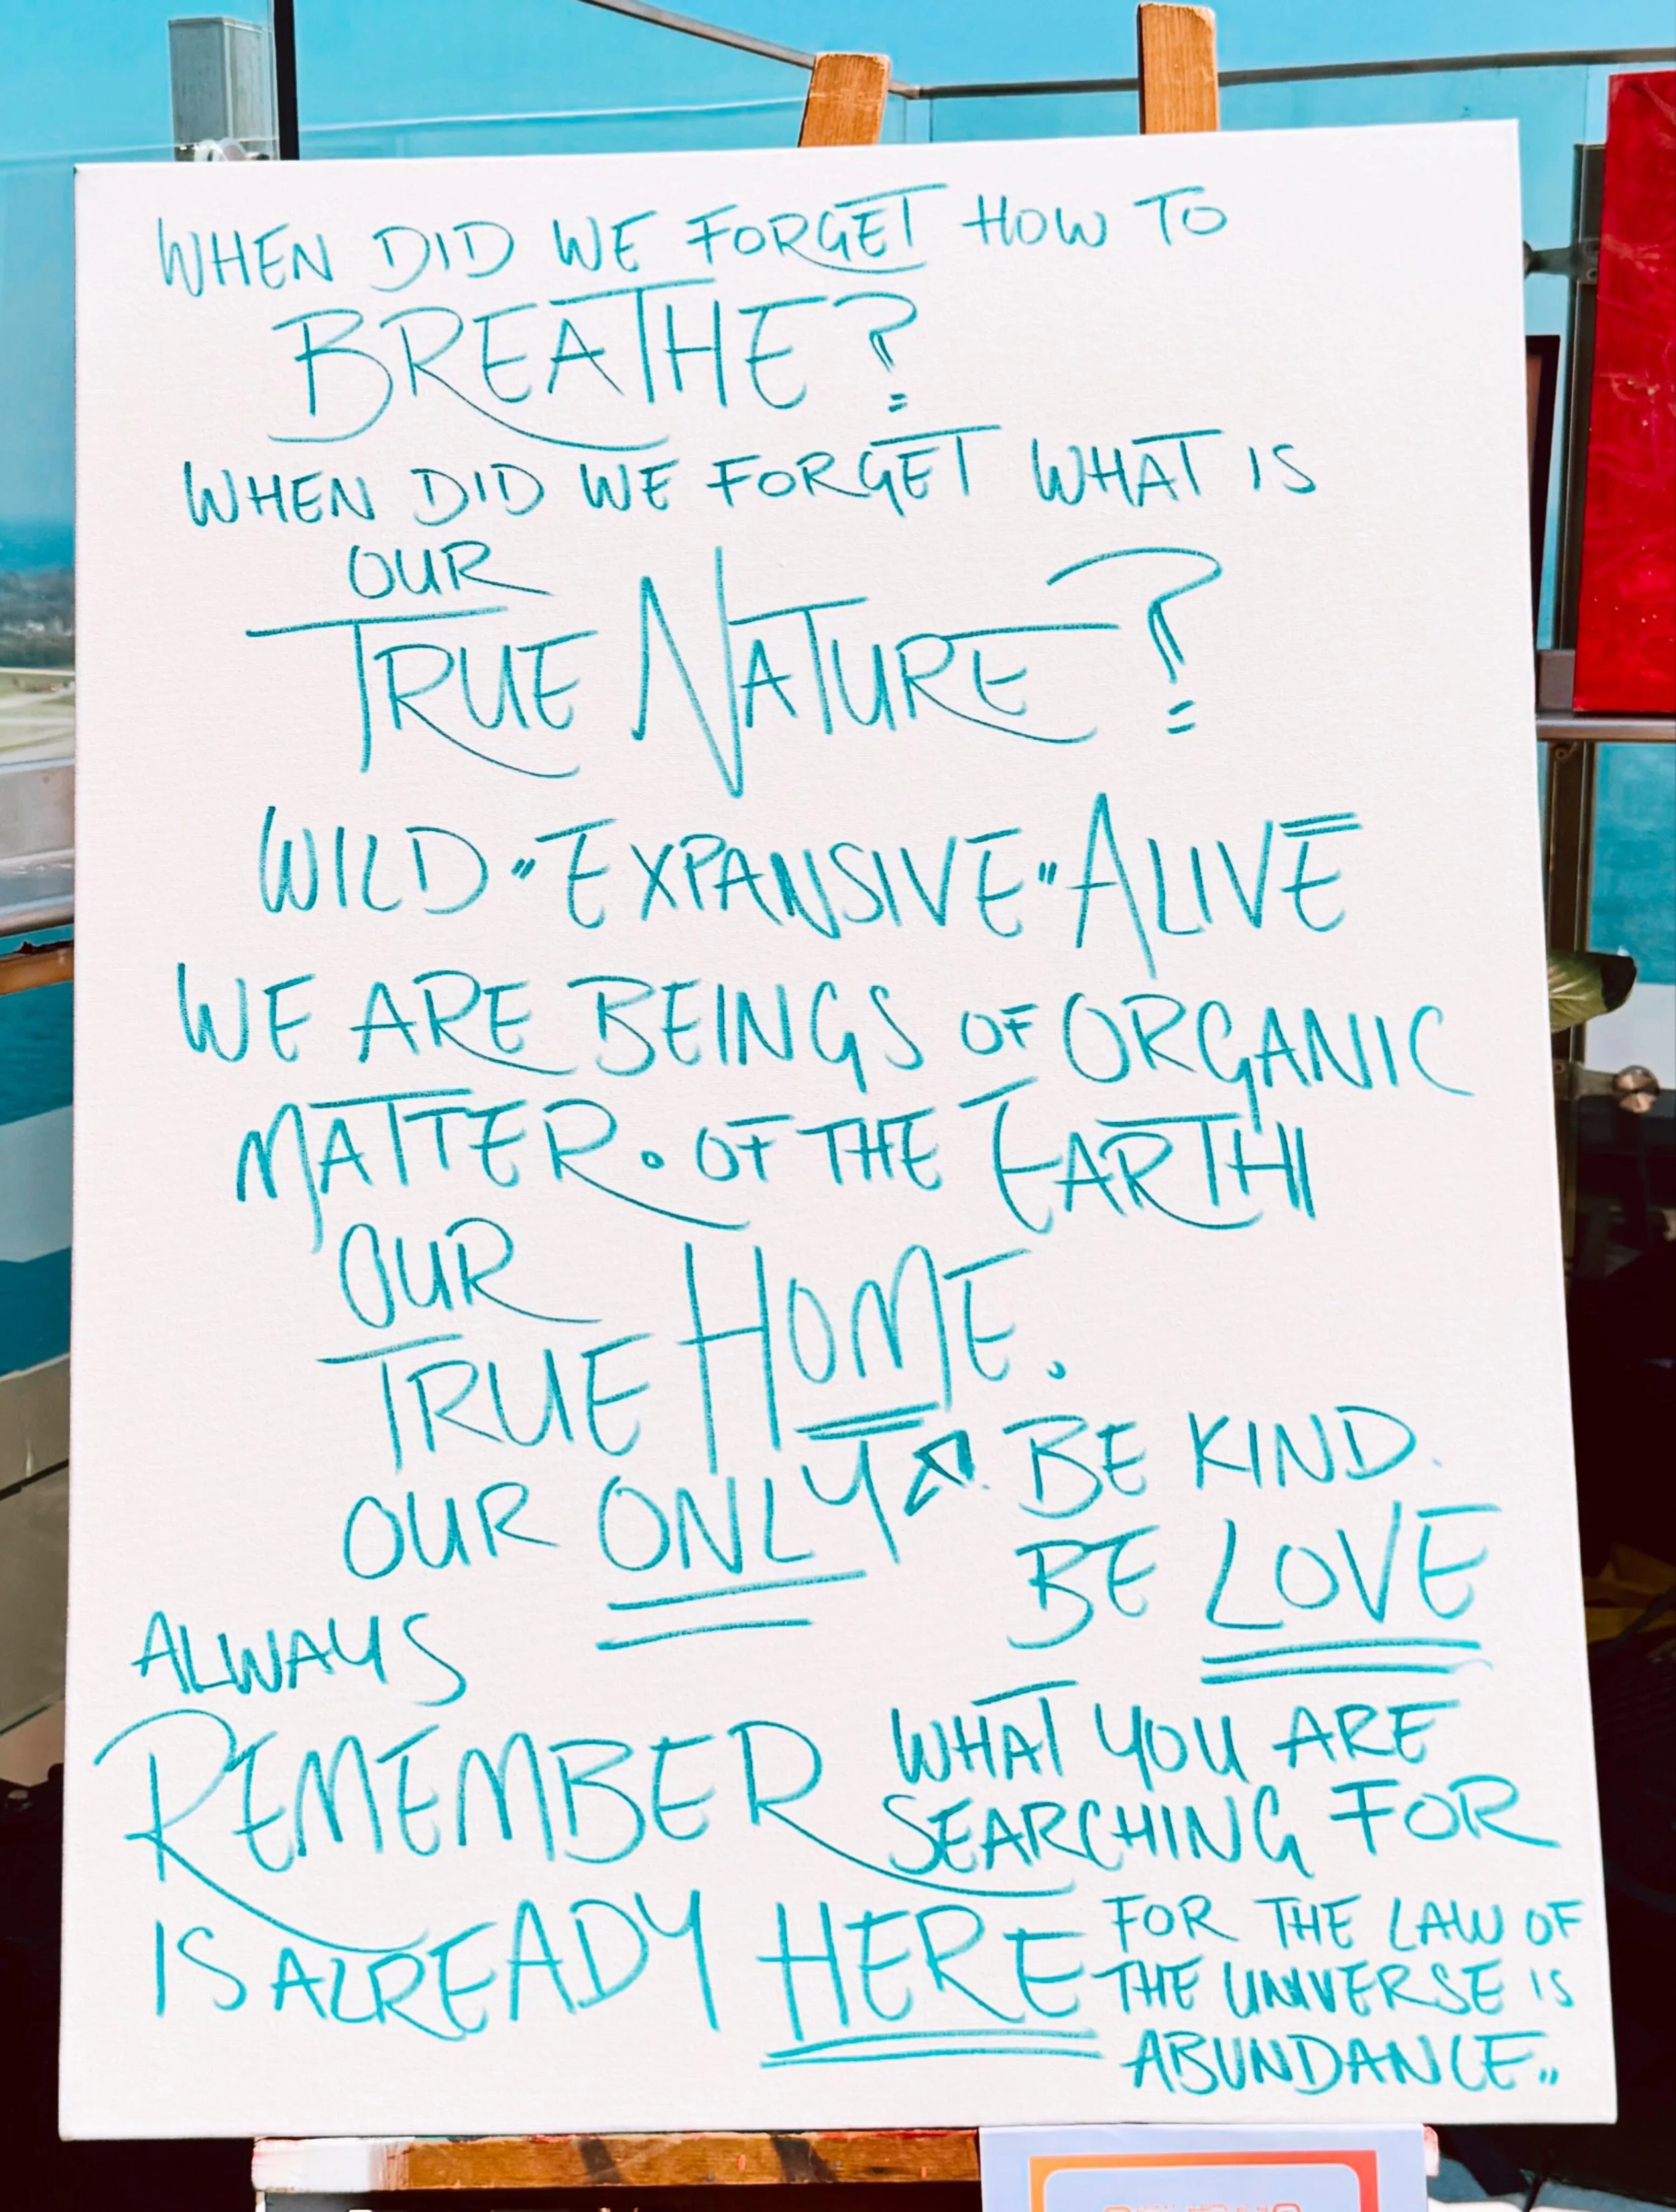 WHEN DID WE FORGET HOW TO
BREATHE?
WHEN DID WE FORGET WHAT IS
OUR
TRUE NATURE?
WILD " EXPANSIVE " ALIVE
WE ARE BEINGS OF ORGANIC
MATTER. OF THE EARTH
OUR
TRUE HOME.
OUR ONLY
BE KIND.
BE LOVE
ALWAYS
REMEMBER
WHAT YOU ARE
SEARCHING FOR
IS ALREADY HERE
FOR THE LAW OF
THE UNIVERSE IS
ABUNDANCE..